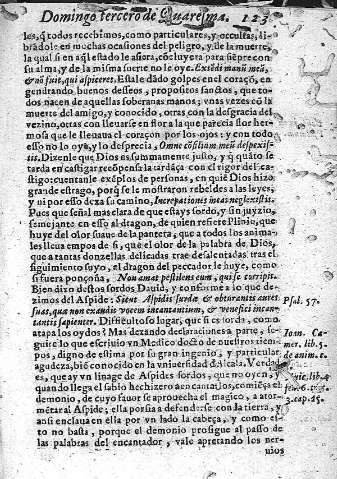 Domingo tercero de Quaresma. 123
les, q̃ todos recebimos, como particulares, y occultas, li-
brãdole en muchas ocasiones del peligro, y de la muerte,
la qual si en aq̃l estado le asiera, cõcluyera para siẽpre con
su alma, y de la misma suerte no le oye. Extẽdi manũ meũ,
& nõ fuit, qui aspiceret. Estale dãdo golpes en el coraçõ, en-
gendrando buenos desseos, propositos sanctos, que to-
dos nacen de aquellas soberanas manos; vnas vezes cõ la
muerte del amigo, y conocido, otras con la desgracia del
vezino, otras con lleuarse en flor a la que parecia flor her-
mosa que le lleuaua el coraçon por los ojos: y con todo
esso no lo oye, y lo desprecia, Omne cõsilium meũ despexi-
stis. Dizenle que Dios es summamente justo, y q̃ quãto se
tarda en castigar recõpensa la tardãça con el rigor del cas-
tigo: cuentanle exẽplos de personas, en quiẽ Dios hizo
grande estrago, porq̃ se le mostraron rebeldes a las leyes,
y ni por esso dexa su camino, Increpationes meas neglexistis.
Pues que señal mas clara de que estays sordo, y sin juyzio,
semejante en esso al dragon, de quien refiere Plinio, que
huye del olor suaue de la pantera, que a todos los anima-
les lleua empos de si, que el olor de la palabra de Dios,
que a tantas donzellas delicadas trae desalentadas tras el
siguimiento suyo, el dragon del peccador le huye, como
si fuera ponçoña, Non amat pestidens eum, qui se corripit.
Bien dixo destos sordos Dauid, y conforme a lo que de-
zimos del Aspide: Sicut Aspidis surdæ & obturantis aures
suas, quæ non exaudit vocem incantantium, & venefici incan-
tantis sapienter. Difficultoso lugar, que si es sorda, como
atapa los oydos? Mas dexando declaraciones a parte, se-
guire lo que escriuio vn Medico docto de nuestros tiem-
pos, digno de estima por su gran ingenio, y particular
agudeza, biẽ conocido en la vniuersidad de Alcala. Verdad
es, que ay vn linage de Aspides sordos, que no oyen, y
quando llega el sabio hechizero a encantarlos, comiẽça el
demonio, de cuyo fauor se aprouecha el magico, a ator-
mẽtar al Aspide; ella porsia a defenderse con la tierra, y
ansi enclaua en ella por vn lado la cabeça, y como es-
to no basta, porque el demonio prosigue al passo de
las palabras del encantador, vale apretando los ner-
uios
Psal. 57.
Ioan. Ca-
mer. lib. 5.
de anim. c.
3. cap. 15.